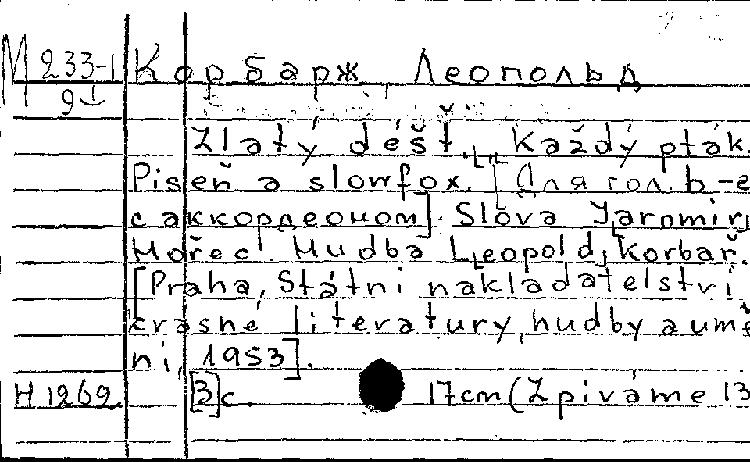 М 233-1 Корбарж, Леопольд
91
Zlatý déšť. Každý pták.
Píseň a slowfox. [Для гол. в-е
с аккордеоном]. Slova Jaromír
Hořec. Hudba Leopold Korbař.
[Praha, Státní nakladatelství
krásné literatury, hudby a umě
ní, 1953].
Н 1269. [3]с. 17cm (Zpíváme 13